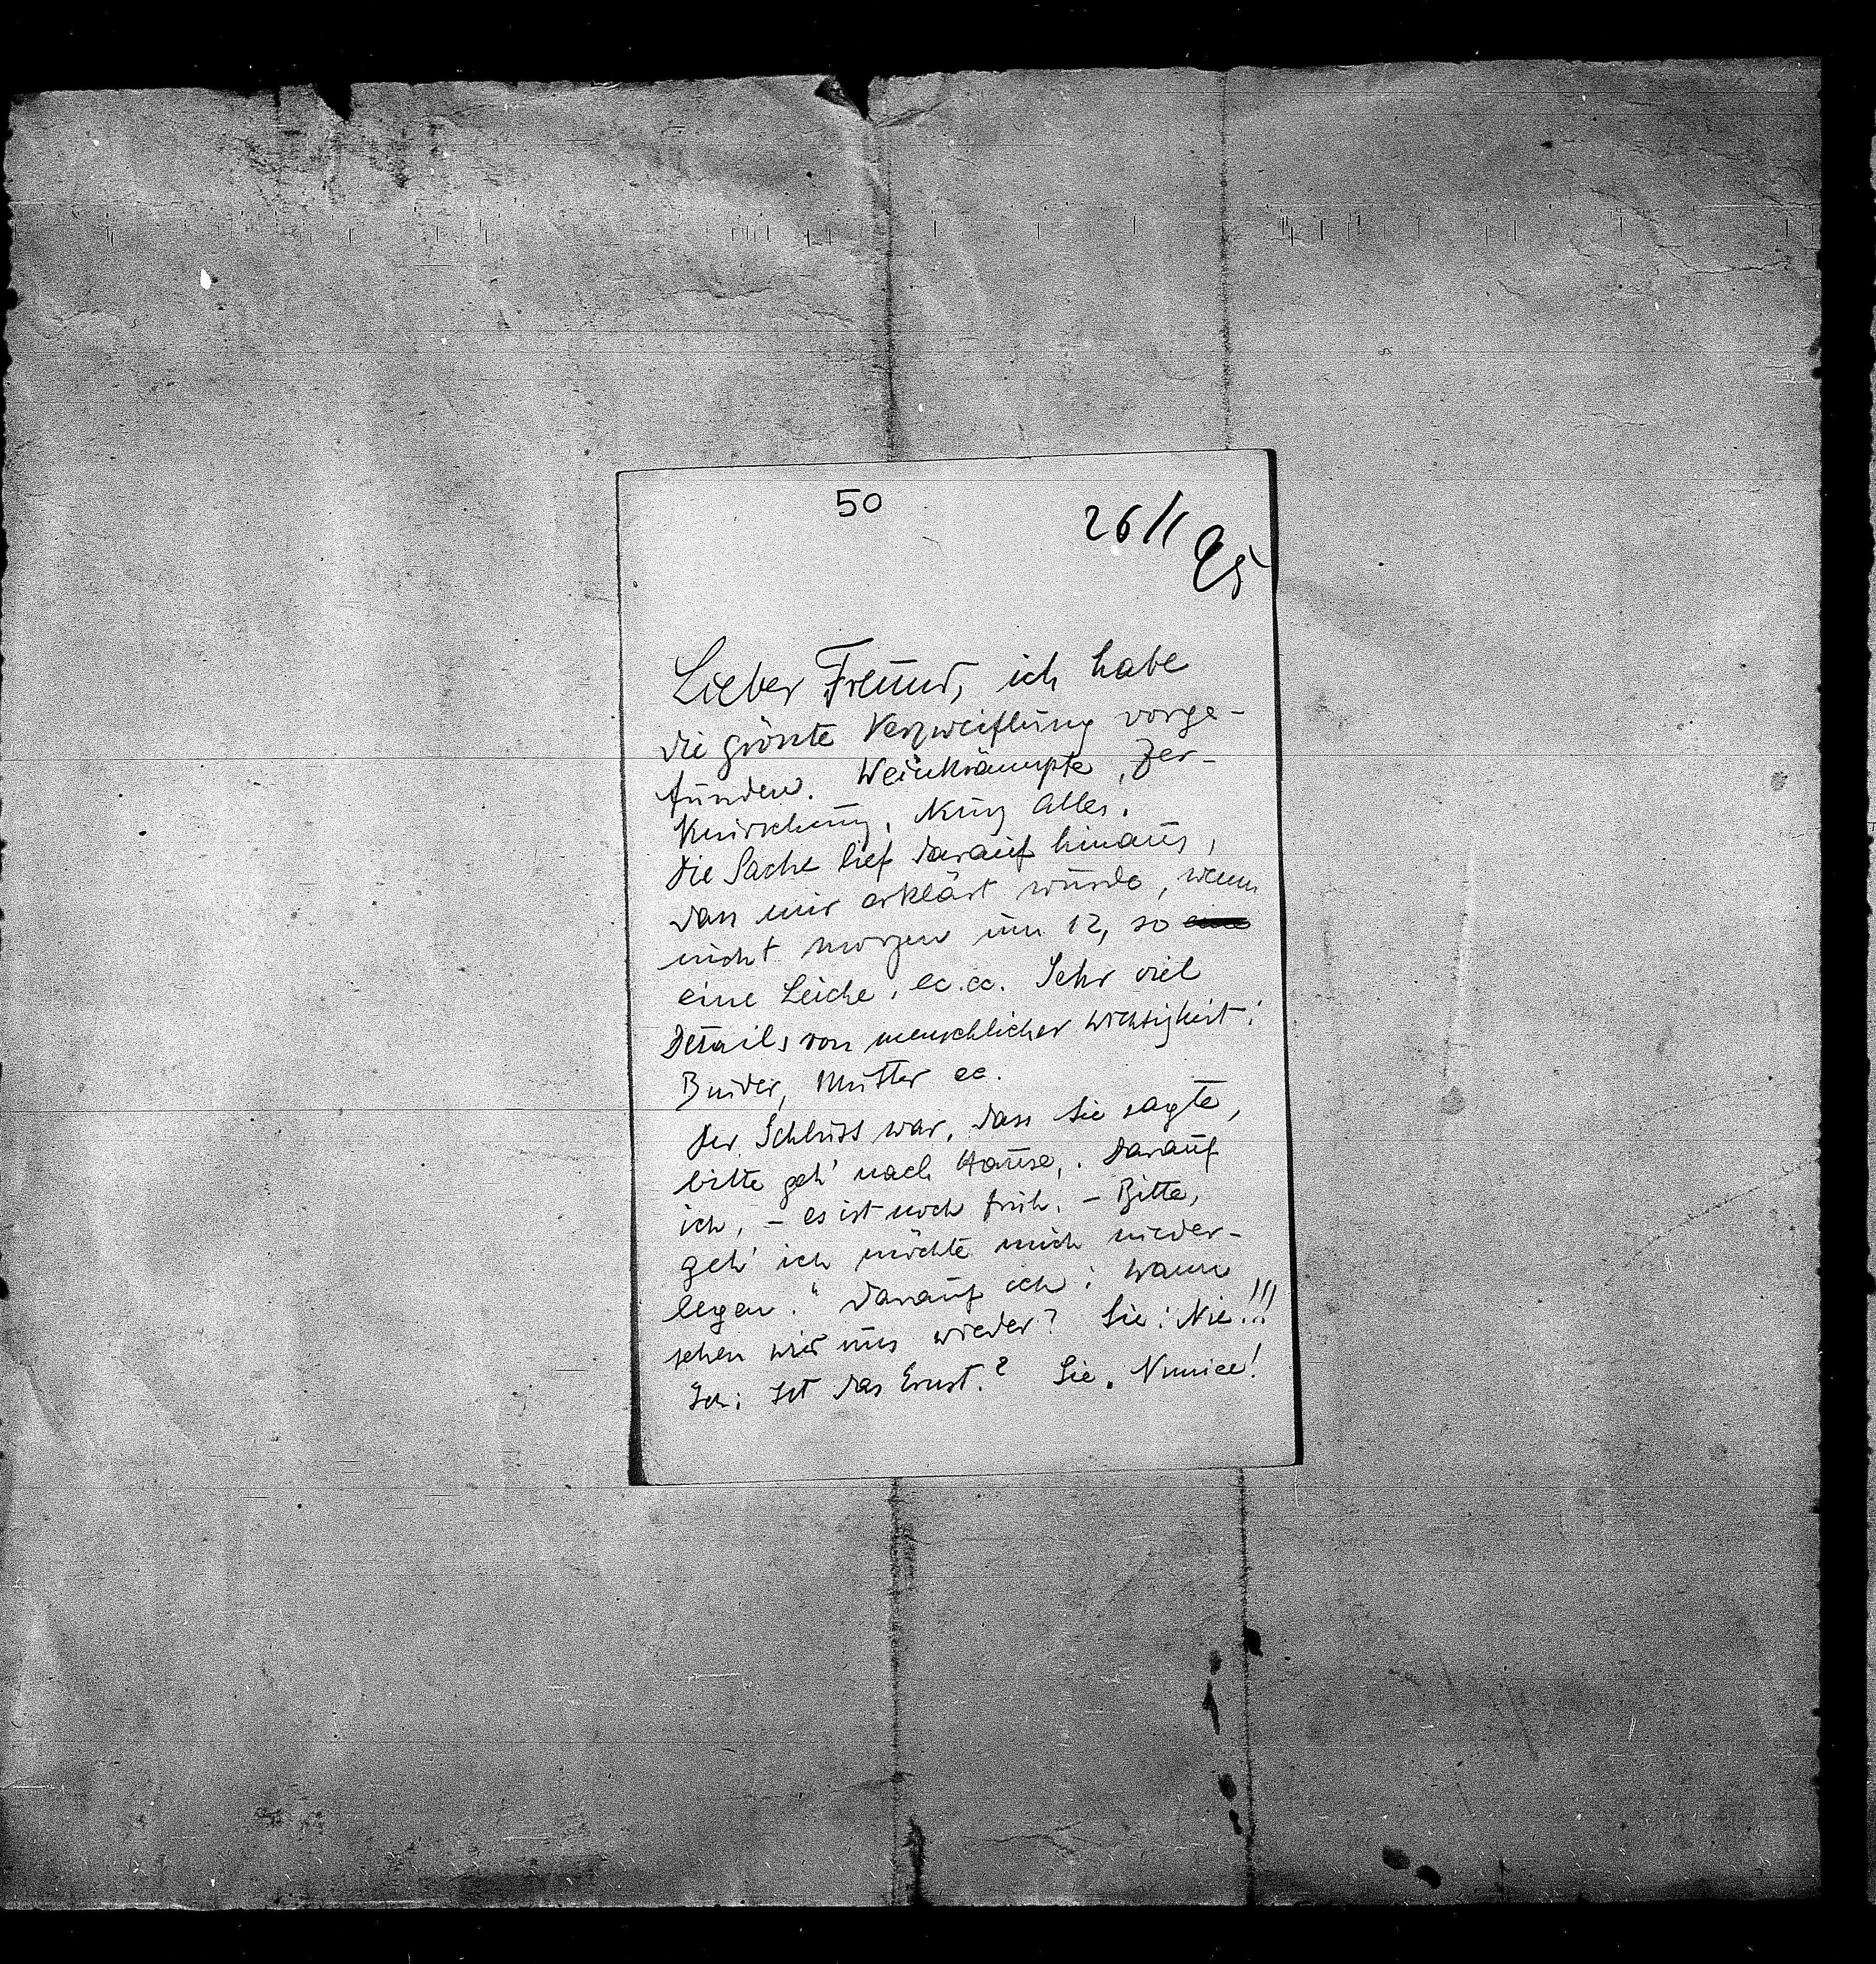 50
26/1 95
Lieber Freund, ich habe
die grösste Verzweiflung vorge-
funden. Weinkrämpfe, Zer-
knirschung, kurz Alles.
Die Sache lief darauf hinaus,
dass mir erklärt wurde, wenn
nicht morgen um 12, so
eine Leiche, ec. ec. Sehr viel
Details von menschlicher Wichtigkeit:
Bruder, Mutter ec.
Der Schluss war, dass sie sagte,
bitte geh' nach Hause,. Darauf
ich, – es ist noch früh. – Bitte,
geh' ich möchte mich nieder-
legen." Darauf ich: Wann
sehen wir uns wieder? Sie: Nie!!!
Ich: Ist das Ernst.? Sie.